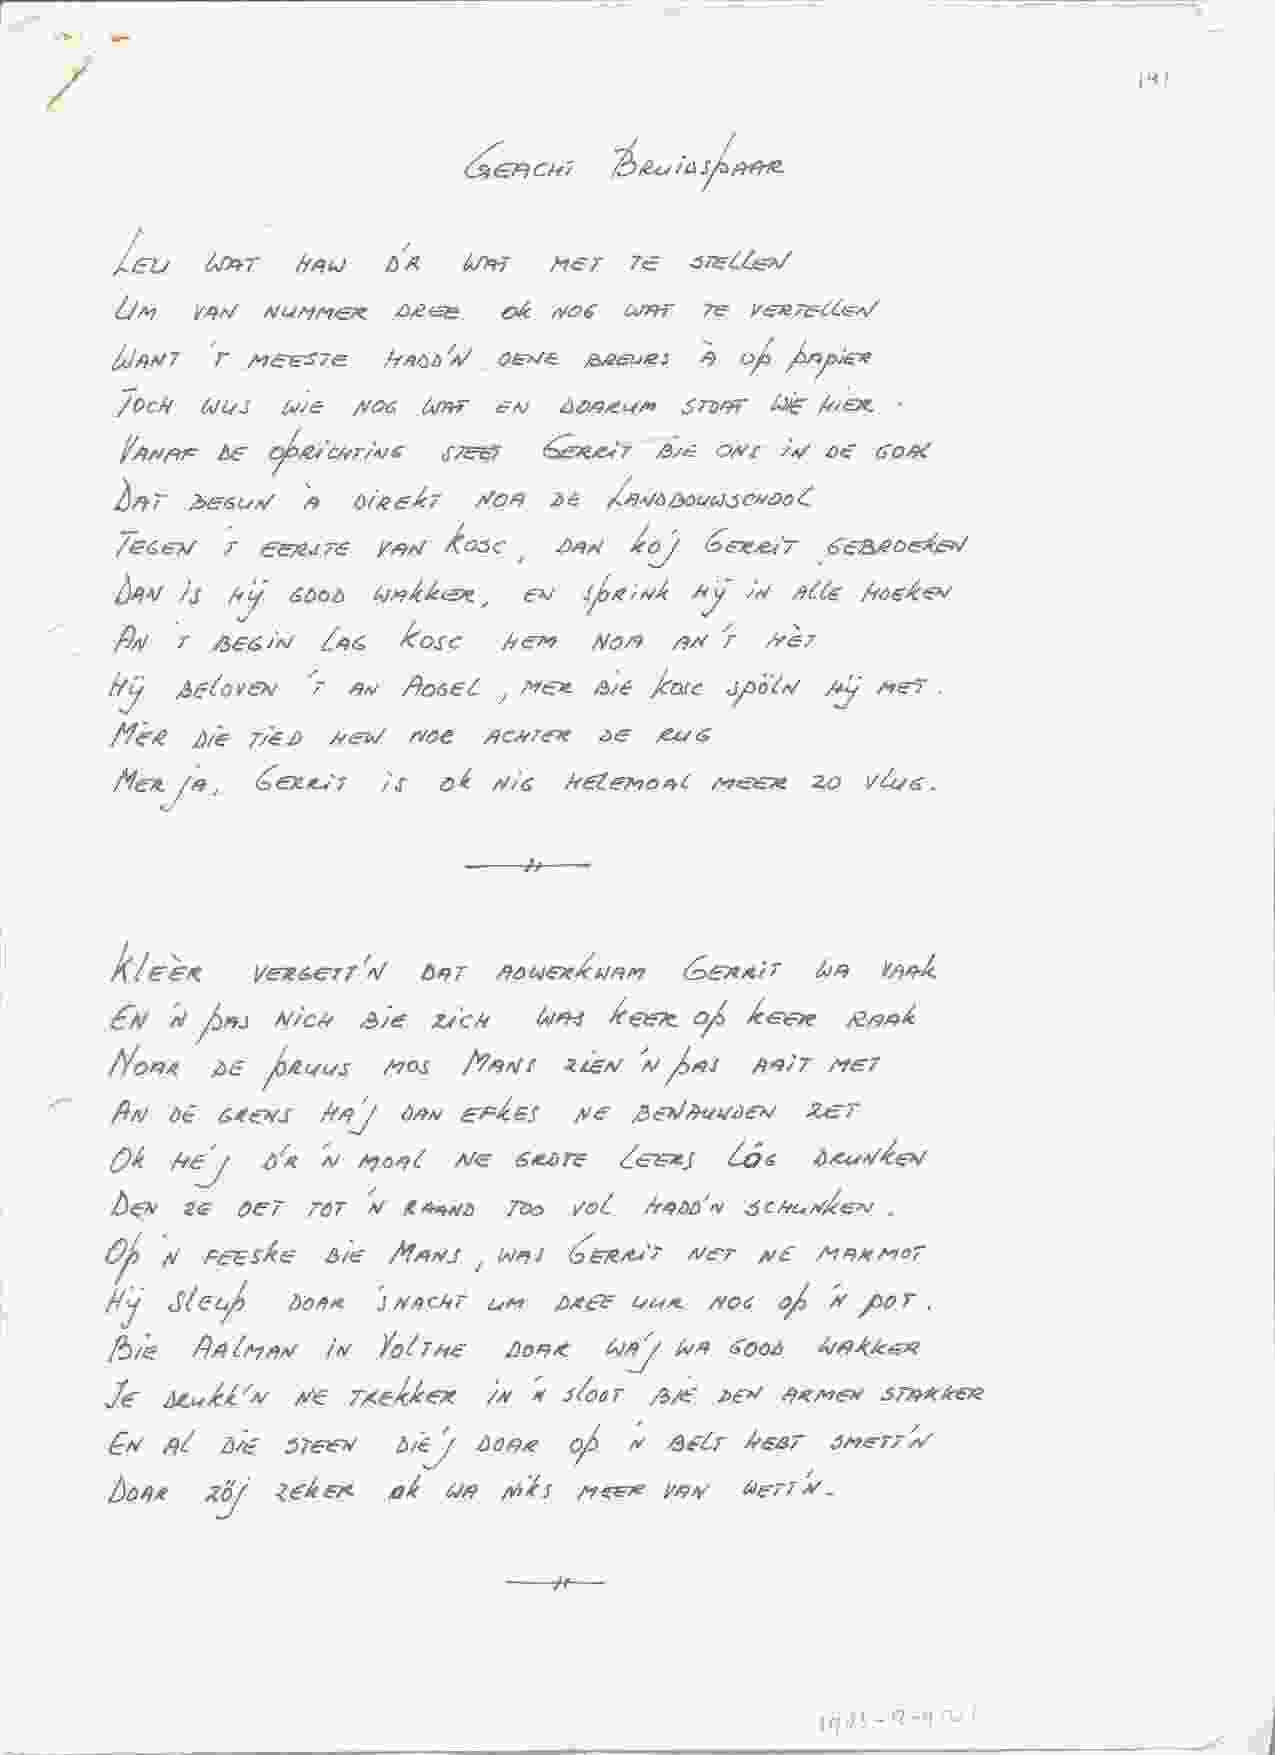 191
Geacht Bruidspaar
Leu wat haw d'r wat met te stellen
Um van nummer dree ok nog wat te vertellen
Want 't meeste hadd'n oene breurs à op papier
Toch wus wie nog wat en doarum stoat wie hier.
Vanaf de oprichting steet Gerrit bie ons in de goal
Dat begun à direkt noa de Landbouwschool
Tegen 't eerste van Kosc, dan ko'j Gerrit gebroeken
Dan is hij good wakker, en sprink hij in alle hoeken
An 't begin lag Kosc hem noa an't hèt
Hij beloven 't an Aogel, mer bie Kosc spöln hij met.
Mèr die tied hew noe achter de rug
Mer ja, Gerrit is ok nig helemoal meer zo vlug.
Kleèr vergett'n dat adwerkwam Gerrit wa vaak
En 'n pas nich bie zich was keer op keer raak
Noar de pruus mos Mans zien 'n pas aait met
An de grens ha'j dan efkes ne benauwden zet
Ok hé'j d'r 'n moal ne grote leers lög drunken
Den ze oet tot 'n raand too vol hadd'n schunken.
Op 'n feeske bie Mans, was Gerrit net ne marmot
Hij sleup doar 's nacht um dree uur nog op 'n pot.
Bie Aalman in Volthe doar wa'j wa good wakker
Je drukk'n ne trekker in 'n sloot bie den armen stakker
En al die steen die'j doar op 'n belt hebt smett'n
Doar zöj zeker ok wa niks meer van wett'n.